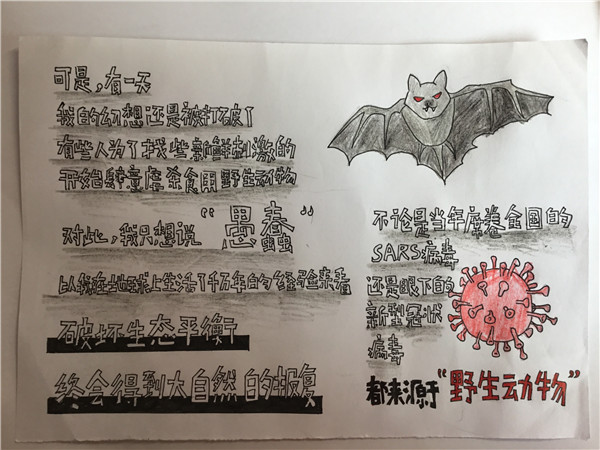 可是，有一天
我的幻想还是被打破了
有些人为了找些新鲜刺激的
开始肆意屠杀食用野生动物
对此，我只想说“愚蠢”
以我在地球上生活了千万年的经验来看
破坏生态平衡
终会得到大自然的报复
不论是当年席卷全国的
SARS病毒
还是眼下的
新型冠状
病毒
都来源于“野生动物”